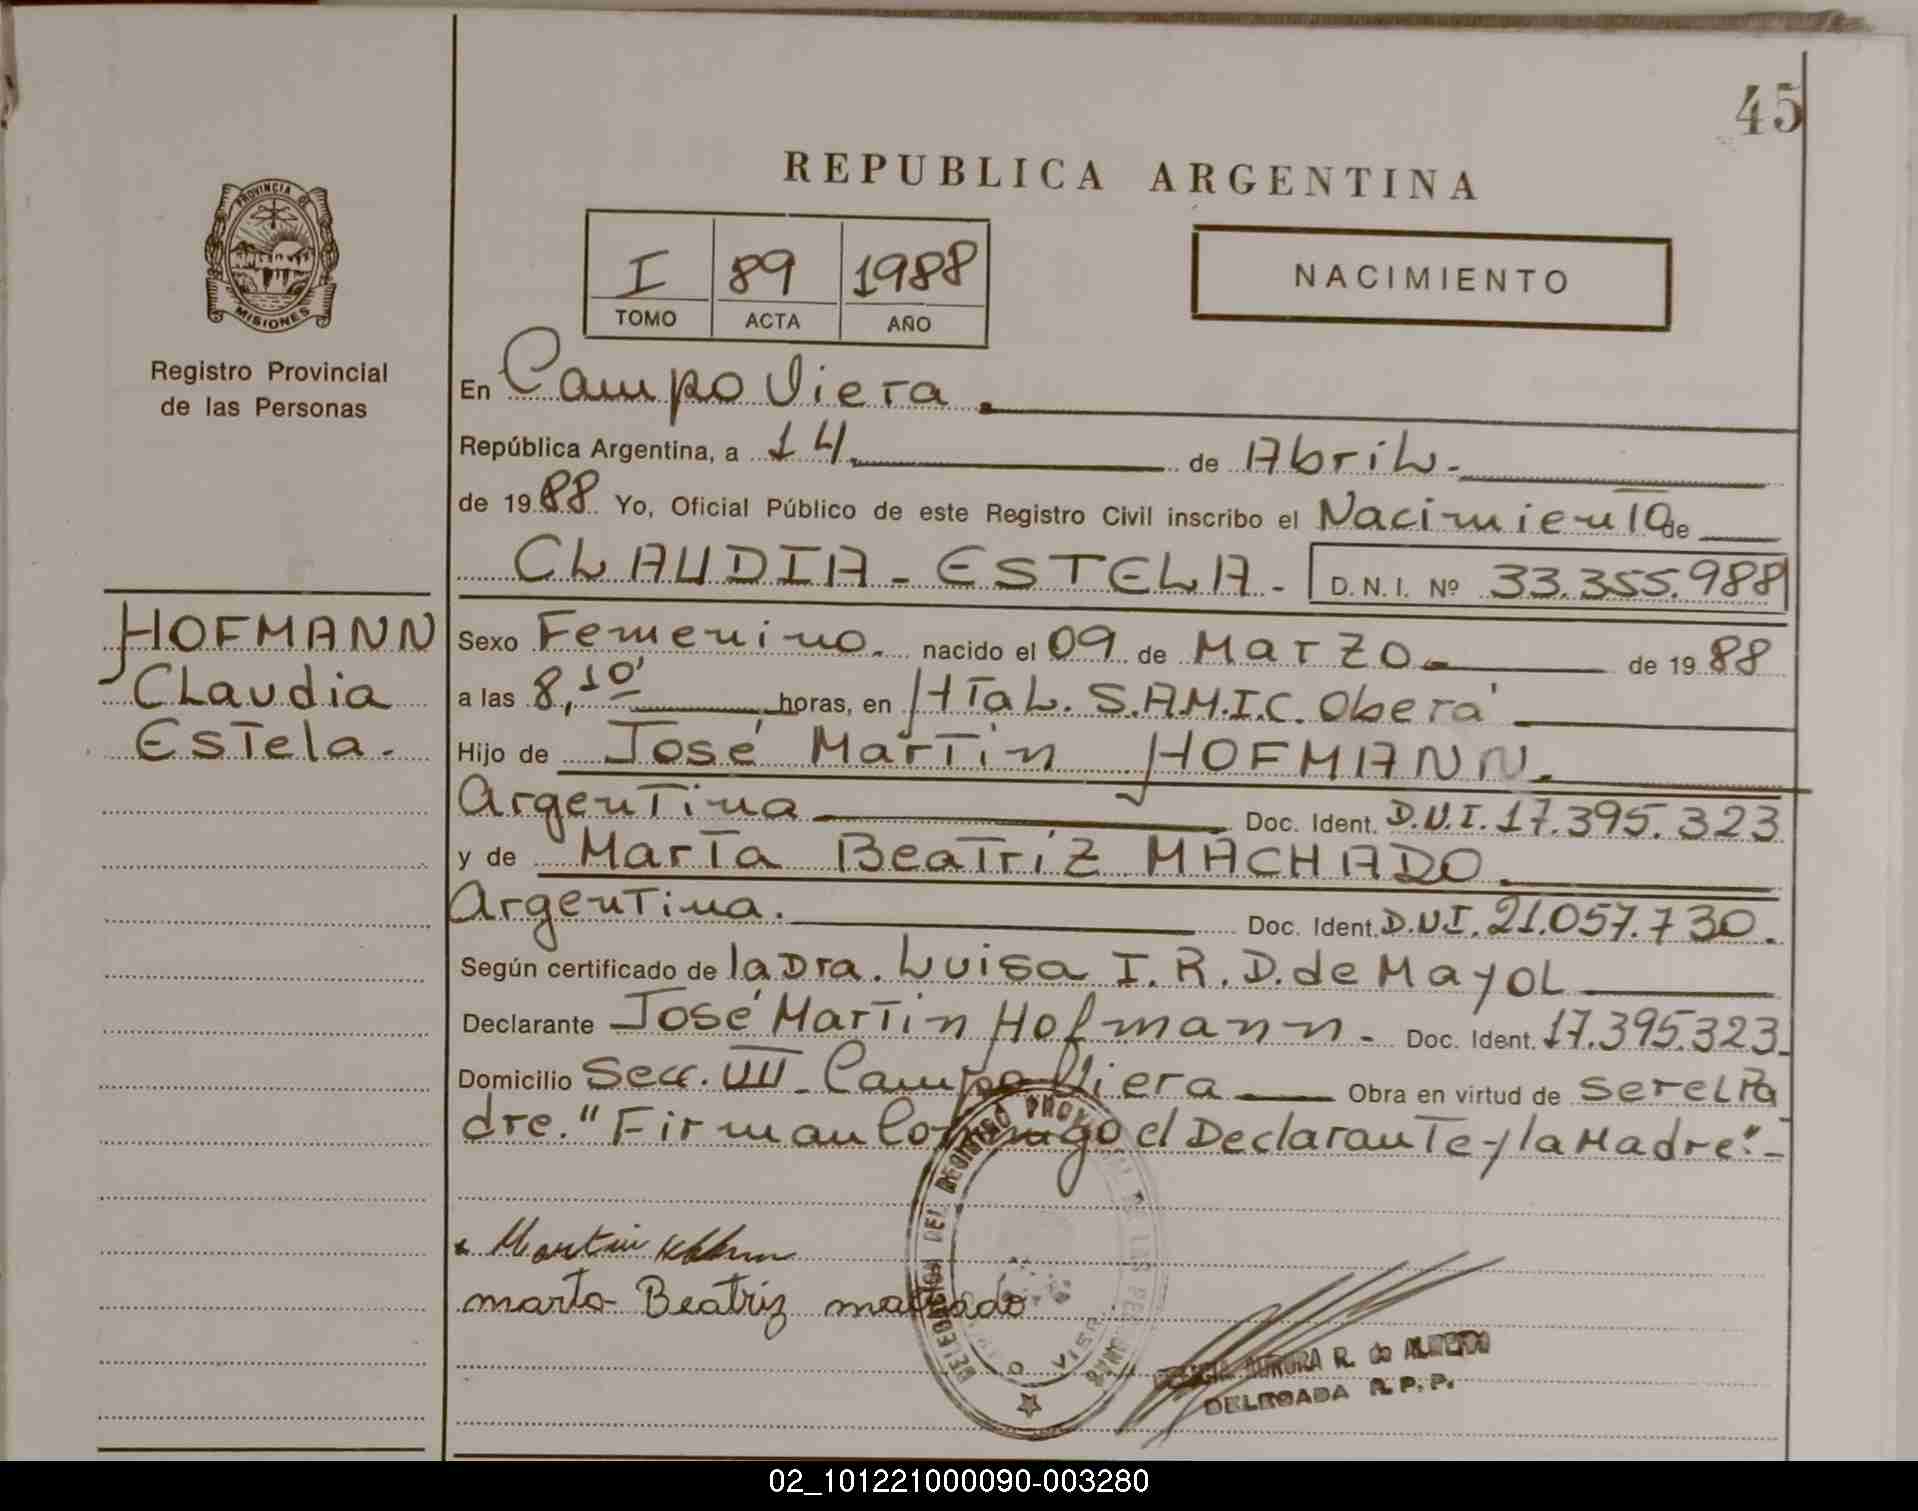 45
REPUBLICA ARGENTINA
PROVINCIA DE
MISIONES
I 89 1988
TOMO ACTA AÑO
NACIMIENTO
Registro Provincial
de las Personas
En Campo Viera.
República Argentina, a 14. de Abril.
de 1988 Yo, Oficial Público de este Registro Civil inscribo el Nacimiento de
CLAUDIA - ESTELA - D. N. I. Nº 33.355.988
HOFMANN
Claudia
Estela.
Sexo Femenino. nacido el 09 de Marzo. de 1988
a las 8,10' horas, en Htal. S.A.M.I.C. Oberá
Hijo de José Martin HOFMANN.
Argentina Doc. Ident. D.N.I. 17.395.323
y de Marta Beatríz MACHADO
Argentina. Doc. Ident. D.N.I. 21.057.730.
Según certificado de la Dra. Luisa I. R. D. de Mayol
Declarante José Martin Hofmann. Doc. Ident. 17.395.323.
Domicilio Secc. VIII - Campo Viera Obra en virtud de ser el Pa
dre. "Firman Conmigo el Declarante y la Madre".-
Martin
marta Beatriz machado
DELEGACION DEL REGISTRO PROVINCIAL DE LAS PERSONAS
AURORA R. de
DELEGADA R. P. P.
02_101221000090-003280